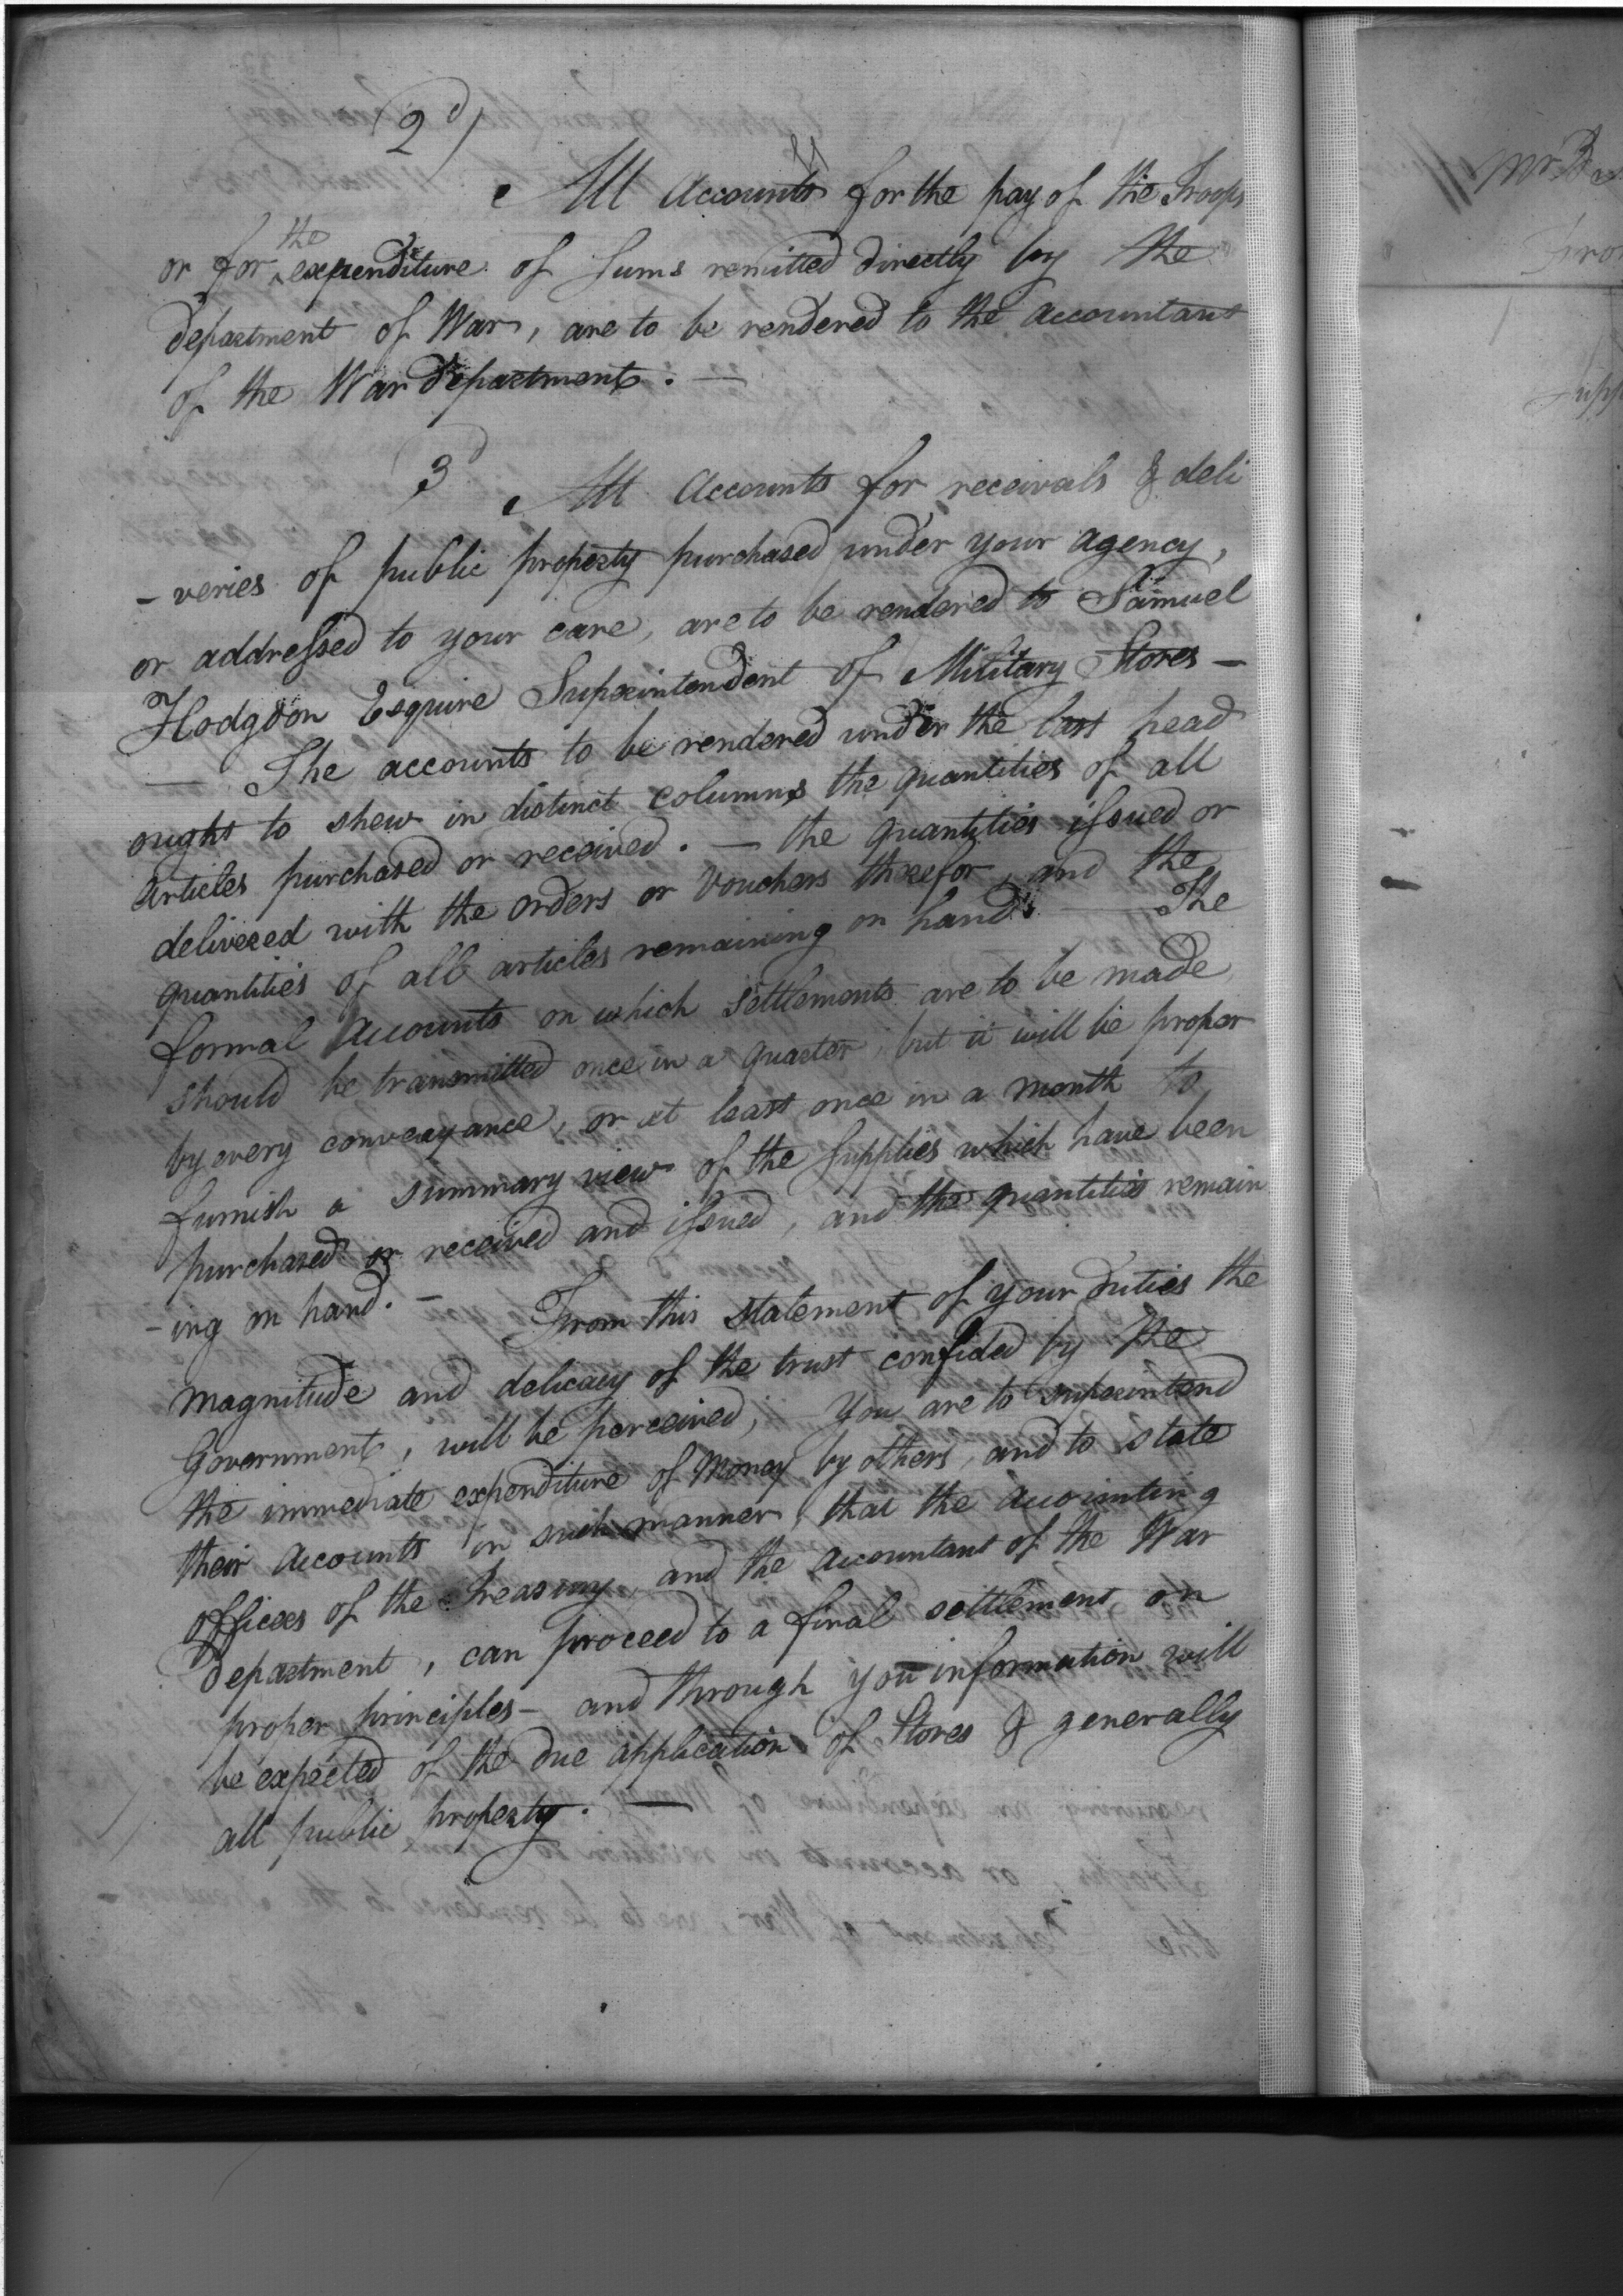 2d)
All Accounts for the pay of the Troops
or for the expenditure of sums remitted directly by the
department of War, are to be rendered to the accountant
of the War department. —
3d
All Accounts for receivals & deli
- veries of public property purchased under your agency,
or addressed to your care, are to be rendered to Samuel
Hodgdon Esquire Superintendent of Military Stores —
— The accounts to be rendered under the last head
ought to shew in distinct columns the quantities of all
articles purchased or received. — the quantities issued or
delivered with the orders or Vouchers therefor, and the
quantities of all articles remaining on hand. — The
formal Accounts on which settlements are to be made,
should be transmitted once in a quarter, but it will be proper
by every conveyance, or at least once in a month to
furnish a summary view of the supplies which have been
purchased or received and issued, and the quantities remain
- ing on hand. —
From this statement of your duties the
magnitude and delicacy of the trust confided by the
Government, will be perceived; You are to superintend
the immediate expenditure of Money by others, and to state
their Accounts in such manner, that the accounting
officers of the Treasury, and the Accountant of the War
department, can proceed to a final settlement, on
proper principles — and through you information will
be expected of the due application of Stores & generally
all public property. —
Mr